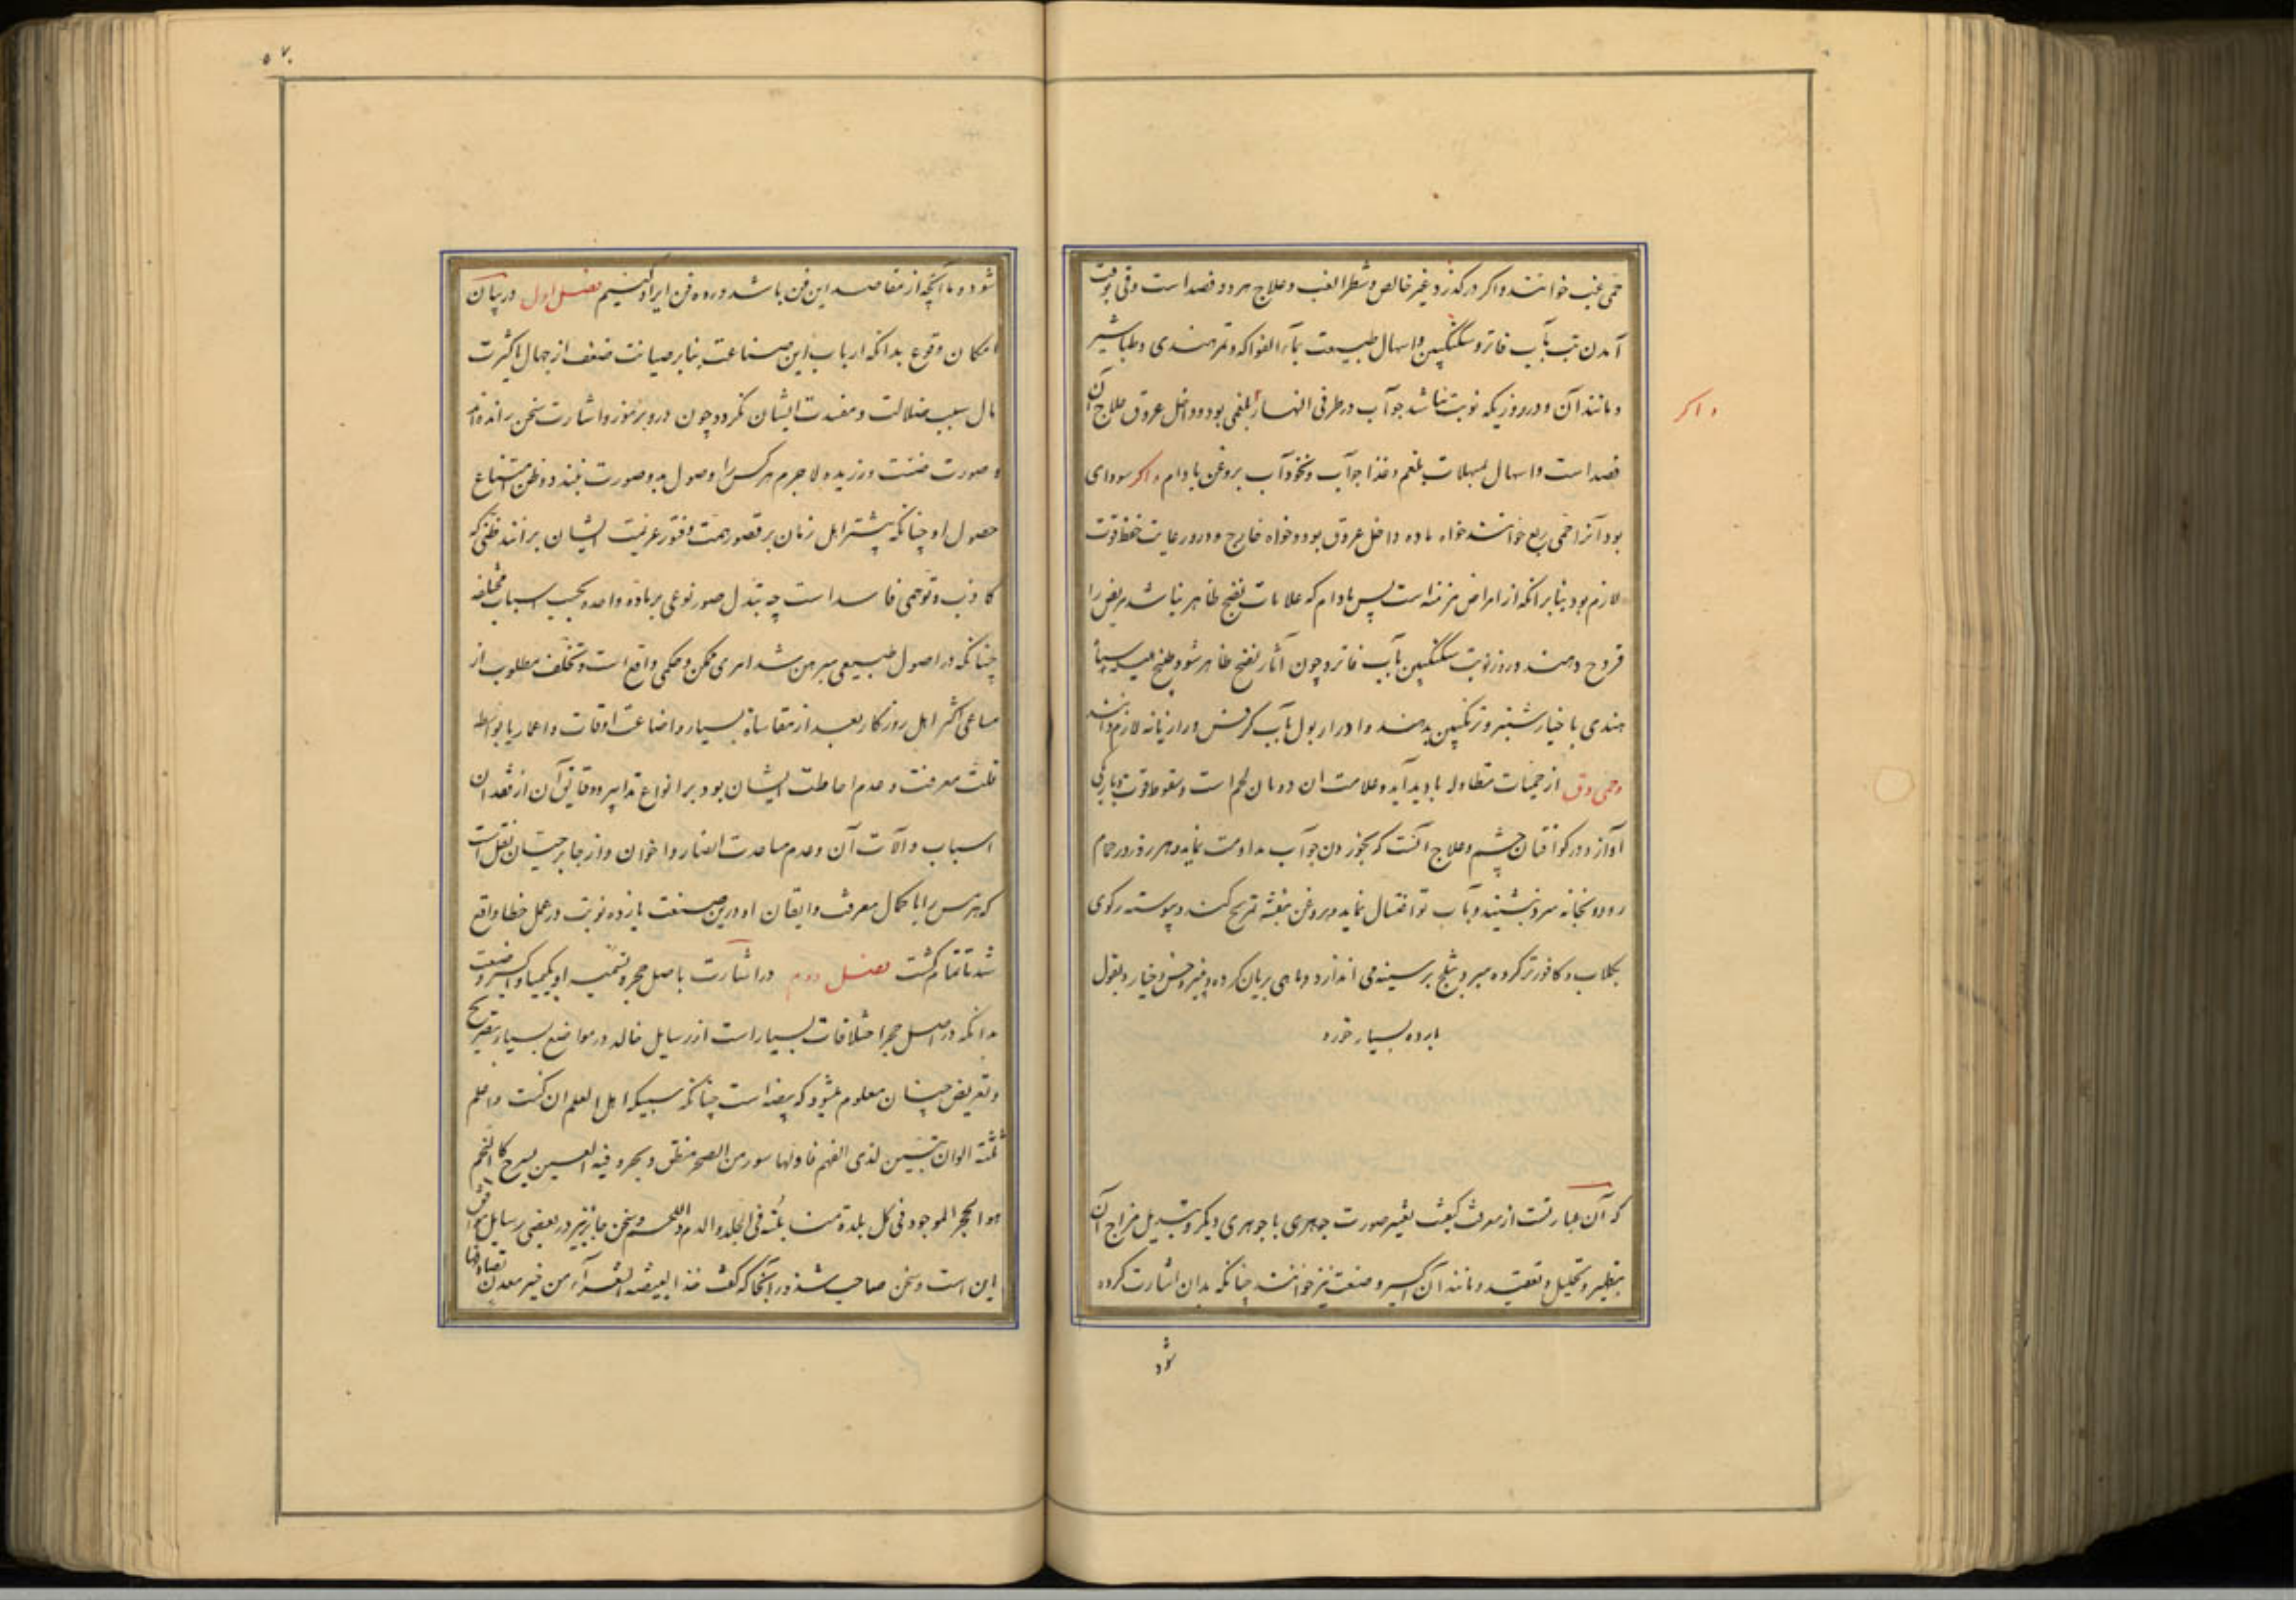 حمی غب خوانند و اکر در کذرد غیر خالص و شطر الغب و علاج هر دو فصد است و قی بوقت
آمدن تب بآب فاتر و سکنکبین و اسهال طبیعت بماء الفواکه و تمر هندی و طباشیر
و مانند آن و در روزیکه نوبت نباشد جو آب در طرفی النهار بلغمی بود و داخل عروق علاج آن
و اکر
فصد است و اسهال بمسهلات بلغم و غذا جو آب و نخود آب بروغن بادام و اکر سودای
بود آنرا حمی ربع خوانند خواه ماده داخل عروق بود و خواه خارج و درو رعایت حفظ قوت
لازم بود بنا برانکه از امراض مزمنه است پس مادام که علامات نضج ظاهر نباشد مریض را
قروح دهند و روز نوبت سکنکبین بآب فاتر و چون آثار نضج ظاهر شود طبخ هلیله سیاه
هندی با خیار شنبر و ترنکبین بدهند و ادرار بول بآب کرفس و رازیانه لازم دانند
و حمی دق از حمیات متطاوله بادید آید و علامت ان ذوبان لحم است و سقوط قوت و باریکی
آواز و در کو افتادن چشم و علاج انست که بخوردن جو آب مداومت نماید و هر روز در حمام
رود و بخانه سرد بنشیند و بآب تو اغتسال نماید و بروغن بنفشه تمریخ کند و پیوسته رکوی
بکلاب و کافور تر کرده مبرد بثلج بر سینه می اندازد و ماهی بریان کرده و پنیر و خس و خیار و بقول
بارده بسیار خورد
که آن عبارتست از معرفت کیفیت تغییر صورت جوهری با جوهری دیکر و تبدیل مزاج آن
بتطهیر و تحلیل و تعقید و مانند آن اکسیر و صنعت نیز خوانند چنانکه بدان اشارت کرده
شود
۵۷۰
شود و ما آنچه از مقاصد این فن باشد در دو فن ایراد کنیم فصل اول در بیان
امکان وقوع بدانکه ارباب این صناعت بنا بر صیانت ضعف از جهال تا کثرت
مال سبب ضلالت و مفسدت ایشان نکردد چون درو برموز و اشارت سخن رانده اند
و صورت ضنت ورزیده لاجرم هر کس را وصول بدو صورت نبندد و ظن امتناع
حصول او چنانکه بیشتر اهل زمان بر قصور همت و فتور عزیمت ایشان برانند ظنی که
کاذب و توهمی فاسد است چه تبدل صور نوعی بر ماده واحده بحسب اسباب مختلفه
چنانکه در اصول طبیعی مبرهن شد امری ممکن و حکمی واقع است و تخلف مطلوب از
مساعی اکثر اهل روزکار بعد از مقاساة بسیار و اضاعت اوقات و اعمار یا بواسطه
قلت معرفت و عدم احاطت ایشان بود بر انواع تدابیر و دقایق آن از فقدان
اسباب و آلات آن و عدم مساعدت انصار و اخوان و از جابر حیان نقل است
که هرمس را با کمال معرفت و ایقان او درین صنعت یازده نوبت در عمل خطا واقع
شد تا تمام کشت فصل دوم در اشارت باصل حجر و تسمیه او بکیمیا و اکسیر و صنعت
بدانکه در اصل حجر اختلافات بسیار است از رسایل خالد در مواضع بسیار بتصریح
و تعریض چنان معلوم میشود که بیضه است چنانکه اهل العلم ان کنت و اعلم
ثلثة الوان تبین لذی الفهم فاولها سور من الصخر منطق و بحر و فیه العین یسرح کالنجم
هو الحجر الموجود فی کل بلدة ثلثة فی الجلد و الدم و اللحم و سخن جابر نیز در بعضی رسایل موافق
این است و سخن صاحب شذور آنجا که کفت خذ البیضة الشقرآء من خیر معدن